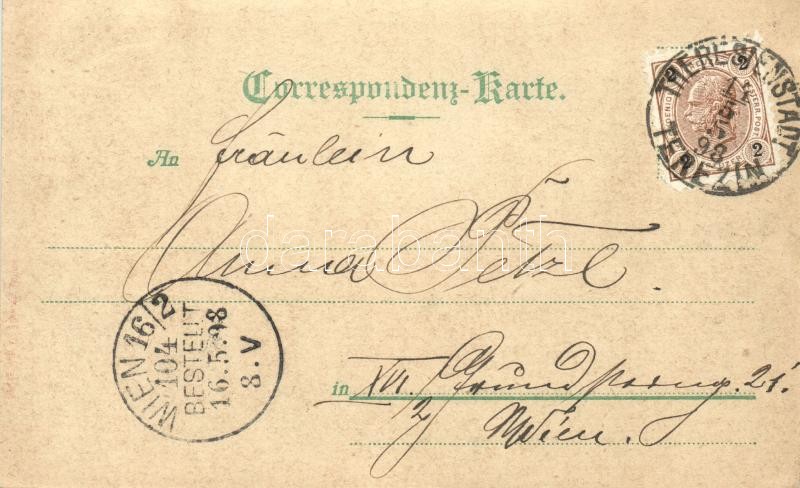 Correspondenz-Karte.
THERESIENSTADT
98
TEREZIN
2
An Fräulein
Anna Petzl.
darabanth
WIEN 16/2
104
BESTELLT
16.5.98
8.V
in XVI/2 21.
Wien.